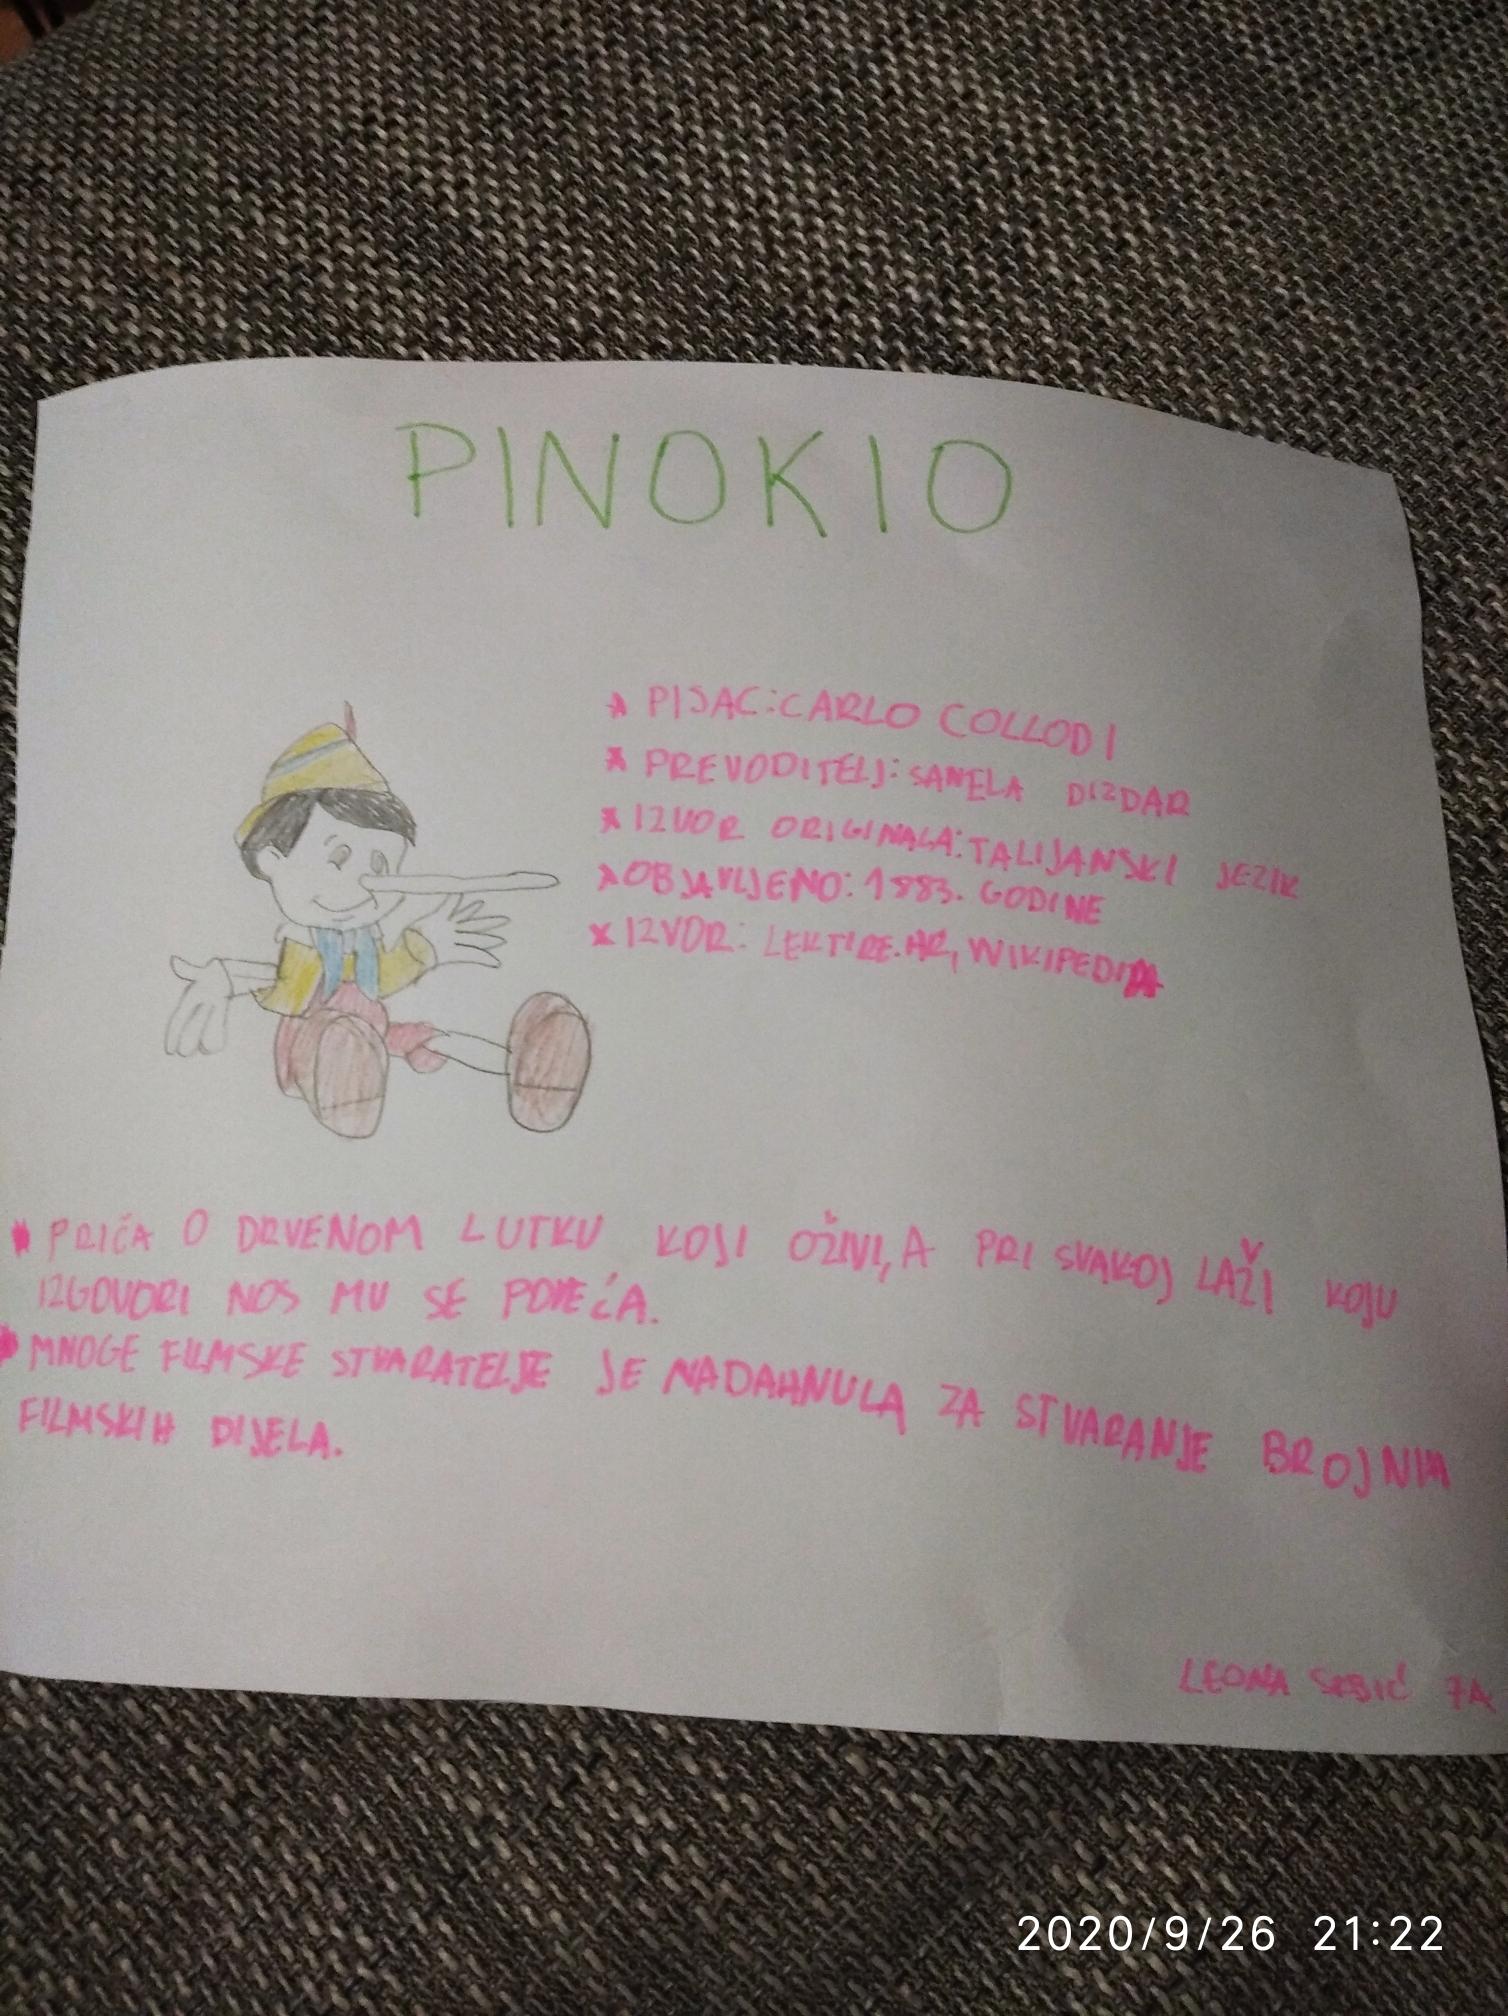 PINOKIO
* PISAC: CARLO COLLODI
* PREVODITELJ: SANELA DIZDAR
* IZVOR ORIGINALA: TALIJANSKI JEZIK
* OBJAVLJENO: 1883. GODINE
* IZVOR: LEKTIRE.HR, WIKIPEDIJA
* PRIČA O DRVENOM LUTKU KOJI OŽIVI, A PRI SVAKOJ LAŽI KOJU
IZGOVORI NOS MU SE POVEĆA.
* MNOGE FILMSKE STVARATELJE JE NADAHNULA ZA STVARANJE BROJNIH
FILMSKIH DIJELA.
LEONA 7A
2020/9/26 21:22